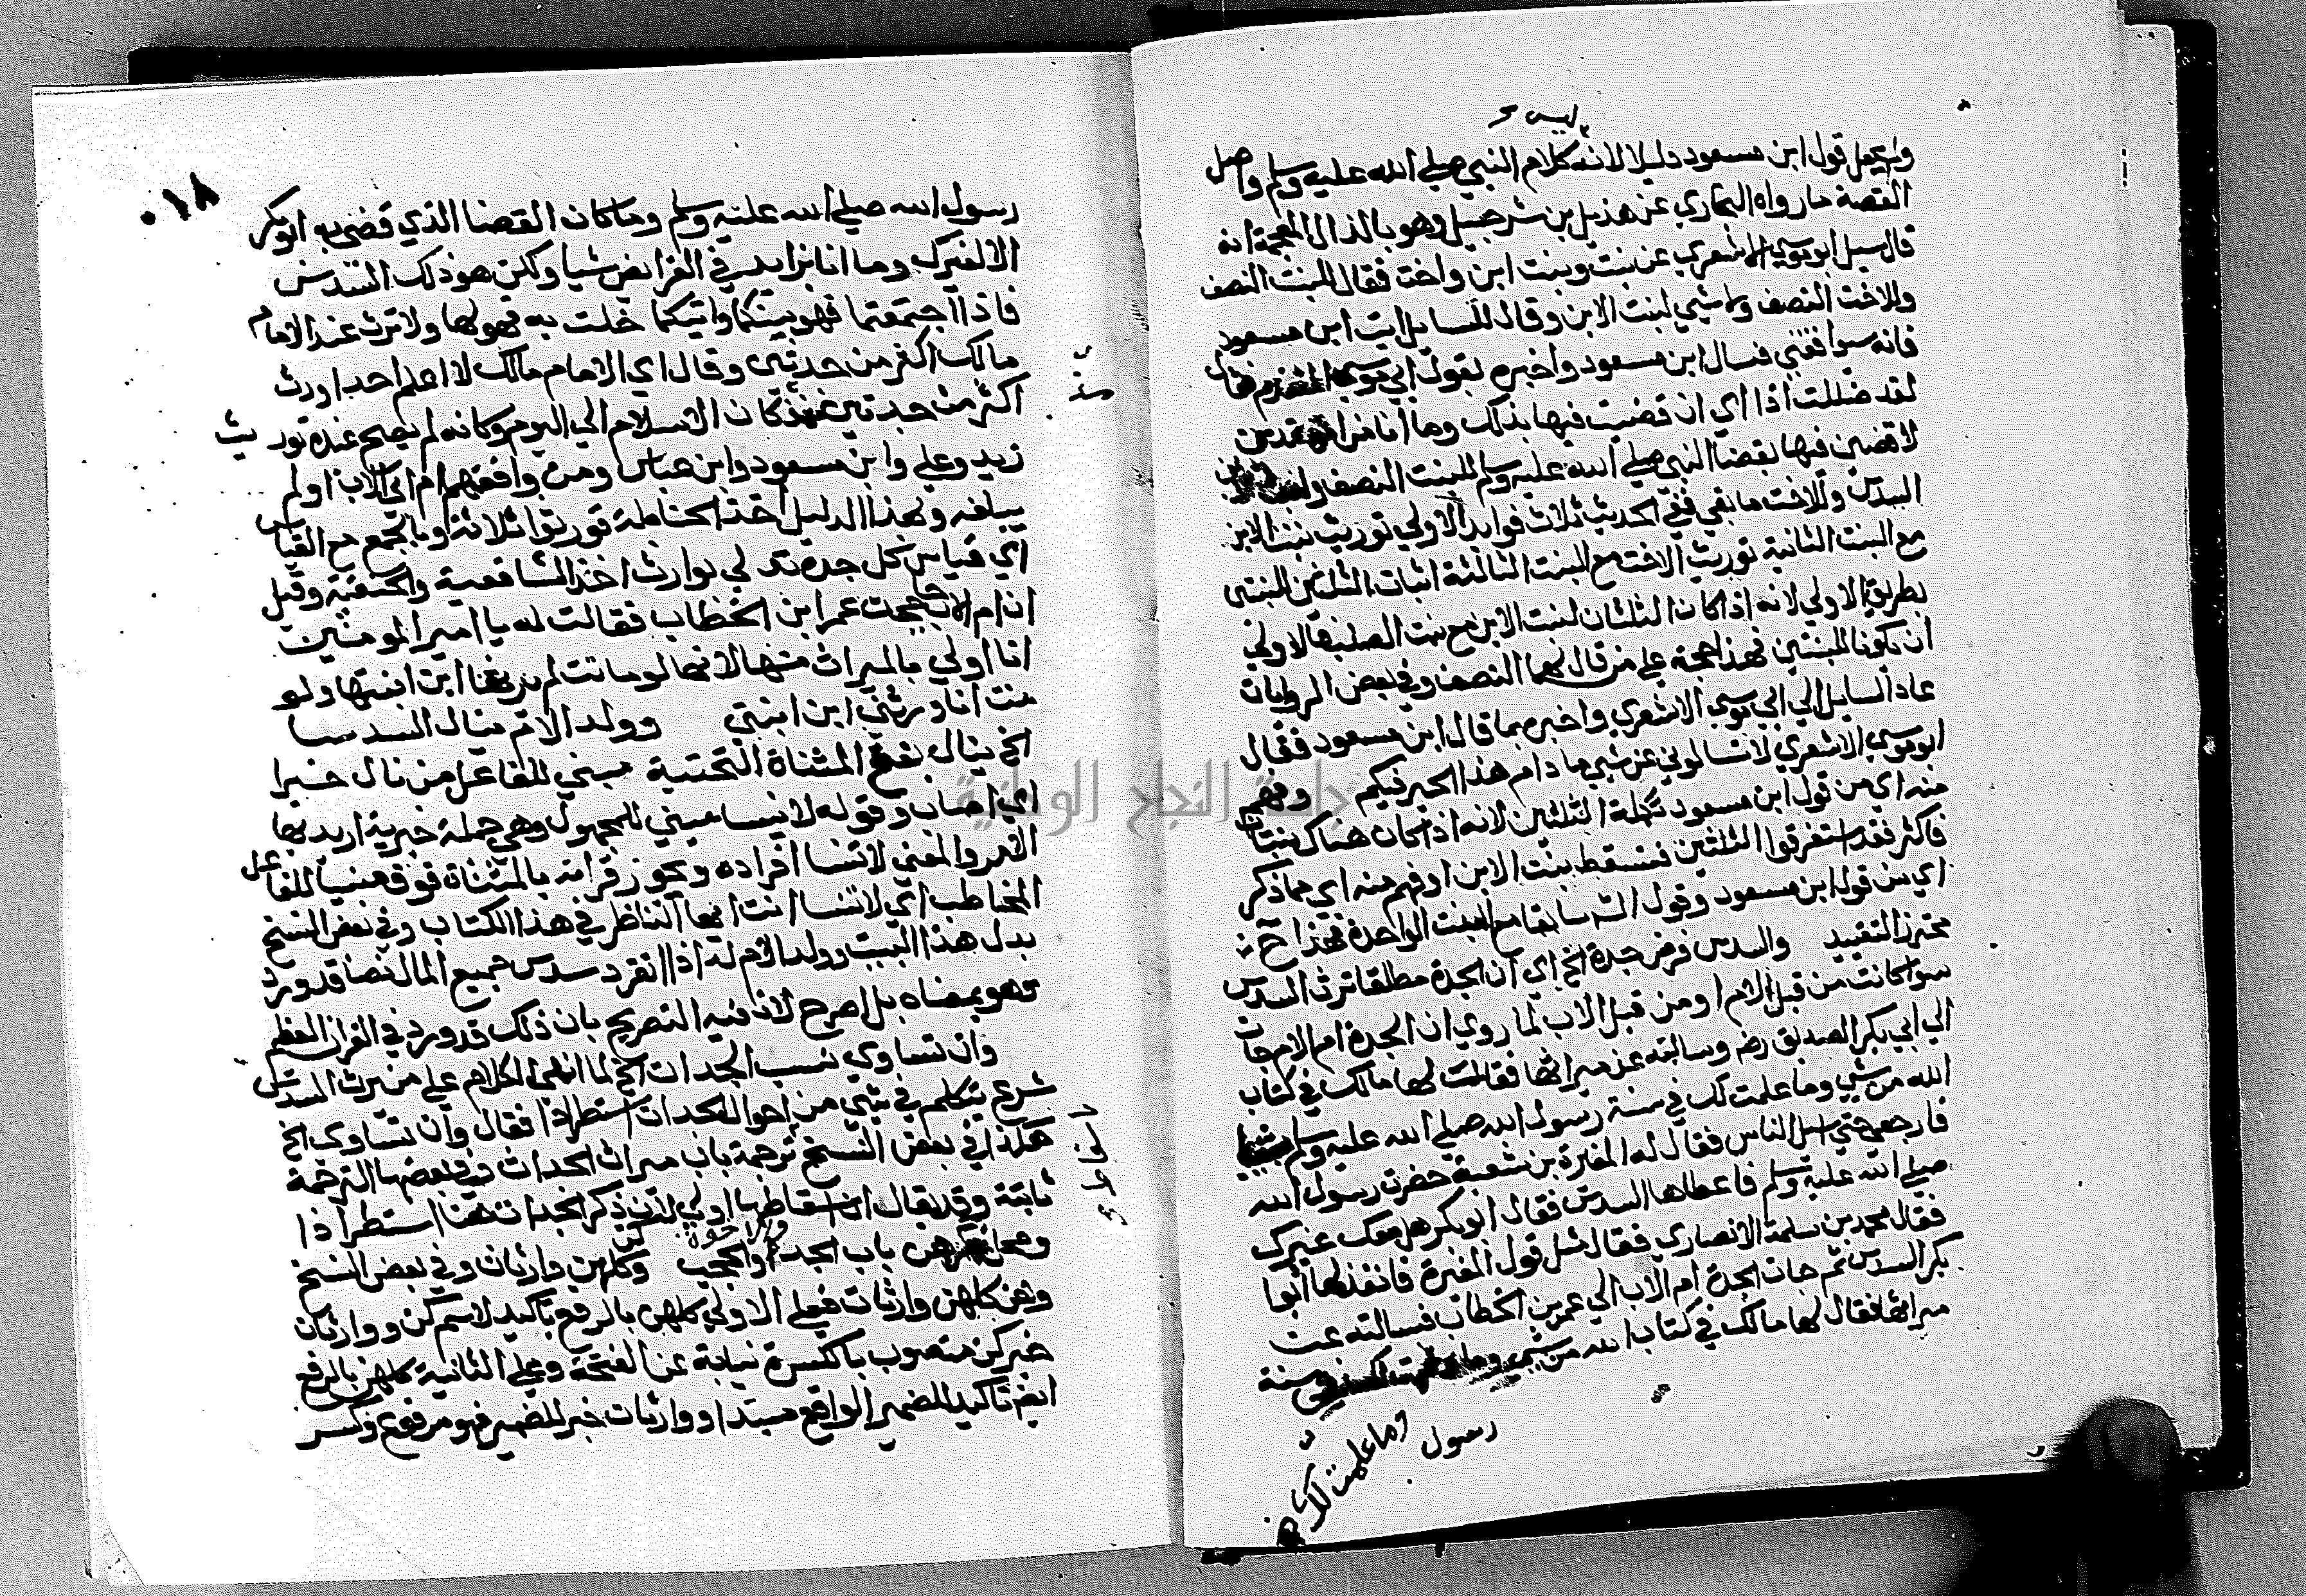 ليس
ولم يجعل قول ابن مسعود دليلا لانه كلام النبي صلي الله عليه وسلم واصل
القصة ما رواه البخاري عن هذيل بن شرحبيل وهو بالذال المعجمة انه
قال سيل ابو موسي الاشعري عن بنت وبنت ابن واخت فقال للبنت النصف
وللاخت النصف ولا شي لبنت الابن وقال للسايل ايت ابن مسعود
فانه سيوافقني فسال ابن مسعود واخبره بقول ابي موسي فقال
لقد ضللت اذا اي ان قضيت فيها بذلك وما انا من المهتدين
لاقضين فيها بقضا النبي صلي الله عليه وسلم للبنت النصف ولبنت الابن
السدس وللاخت ما بقي ففي الحديث ثلاث فوايد الاولي توريث بنت الابن
مع البنت الثانية توريث الاخت مع البنت الثالثة اثبات الثلثين للبنتين
بطريق الاولي لانه اذا كان الثلثان لبنت الابن مع بنت الصلب فالاولي
ان يكونا للبنتين فهذا حجة علي من قال لهما النصف وفي بعض الروايات
عاد السايل الي ابي موسي الاشعري واخبره بما قال ابن مسعود فقال
ابو موسي الاشعري لا تسالوني عن شي ما دام هذا الحبر فيكم وفهم
منه اي من قول ابن مسعود تكملة الثلثين لانه اذا كان هناك بنتان
فاكثر فقد استغرقوا الثلثين فتسقط بنت الابن او فهم منه اي مما ذكر
اي من قول ابن مسعود وقول الش سابقا مع البنت الواحدة فهذا ح
محترز التقييد والسدس فرض جدة الخ اي ان الجدة مطلقا ترث السدس
سوا كانت من قبل الام او من قبل الاب لما روي ان الجدة ام الام جات
الي ابي بكر الصديق رضه وسالته عن ميراثها فقال لها مالك في كتاب
الله من شي وما علمت لك في سنة رسول الله صلي الله عليه وسلم شيا
فارجعي حتي اسل الناس فقال له المغيرة بن شعبة حضرت رسول الله
صلي الله عليه وسلم فاعطاها السدس فقال ابو بكر هل معك غيرك
فقال محمد بن سلمة الانصاري فقال مثل قول المغيرة فانفذ لها ابوا
بكر السدس ثم جات الجدة ام الاب الي عمر بن الخطاب فسالته عن
ميراثها فقال لها مالك في كتاب الله من شي سنة
رسول
وما علمت لك في
٠١٨
رسول الله صلي الله عليه وسلم وما كان القضا الذي قضي به ابو بكر
الا لغيرك وما انا بزايد في الفرايض شيا ولكن هو ذلك السدس
فاذا اجتمعتما فهو بينكما وايتكما خلت به فهو لها ولا ترث عند الامام
مالك اكثر من جدتين وقال اي الامام مالك لا اعلم احدا ورث
اكثر من جدتين منذ كان الاسلام الي اليوم وكانه لم يصح عنده توريث
زيد وعلي وابن مسعود وابن عباس ومن وافقهم ام ابي الاب او لم
يبلغه ولهذا الدليل اخذ الحنابلة فورثوا ثلاثة وبالجمع مع القياس
اي قياس كل جدة تدلي بوارث اخذ الشافعية والحنفية وقيل
ان ام الاب حججت عمر ابن الخطاب فقالت له يا امير المومنين
انا اولي بالميراث منها لانها لو ماتت لم يرثها ابن ابنتها ولو
مت انا ورثني ابن ابني وولد الام ينال السدسا
الخ ينال بفتح المثناة التحتية مبني للفاعل من نال خيرا
اي اصاب وقوله لا ينسا مبني للمجهول وهي جملة خبرية اريد بها
الامر والمعني لا تنسا افراده ويجوز قراته بالمثناة فوق مبنيا للفاعل
المخاطب اي لا تنسا انت ايها الناظر في هذا الكتاب وفي بعض النسخ
بدل هذا البيت وولد الام له اذا انفرد سدس جميع المال نصا قد ورد
وهو بمعناه بل اصرح لان فيه التصريح بان ذلك قد ورد في القران العظيم
وان تساوي نسب الجدات الخ لما انهي الكلام علي من يرث السدس
شرع يتكلم في شي من احوال الجدات استطرادا فقال وان تساوي الخ
هكذا في بعض النسخ ترجمة باب ميراث الجدات وفي بعضها الترجمة
ثابتة وقد يقال ان اسقاطها اولي لان ذكر الجدات هنا استطرادا
باب الجد والاخوة والحجب وكن كلهن وارثات وفي بعض النسخ
وهن كلهن وارثات فعلي الاولي كلهن بالرفع تاكيد لاسم كن ووارثات
خبر كن منصوب بالكسرة نيابة عن الفتحة وعلي الثانية كلهن بالرفع
ايضا تاكيد للضمير الواقع مبتدا ووارثات خبر للضمير فهو مرفوع وكسر
جامعة النجاح الوطنية